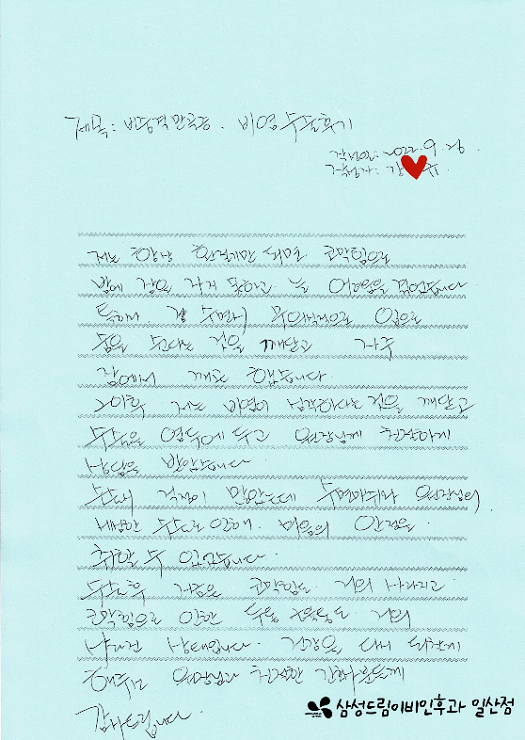 제목: 비중격만곡증. 비염 수술후기
작성일: 2022. 9. 26.
작성자: 김
저는 항상 환절기만 되면 코막힘으로
밤에 잠을 자지 못하고 늘 어려움을 겪었습니다
특히나 잘 수면시 무의식적으로 입으로
숨을 쉰다는 것을 깨닫고 자주
잠에서 깨곤 했습니다.
이후 저는 비염이 심각하다는 것을 깨닫고
수술을 염두에 두고 원장님께 친절하게
상담을 받았습니다
수술시 걱정이 많았는데 수면마취와 원장님의
세밀한 수술로 인해. 마음의 안정을.
취할 수 있었습니다.
수술후 지금은 코막힘도. 거의 사라지고.
코막힘으로 인한 두통 거의
사라진 상태입니다. 건강을 다시 되찾게
해주신 원장님과 친절한 간호사분들께
감사드립니다.
삼성드림이비인후과 일산점